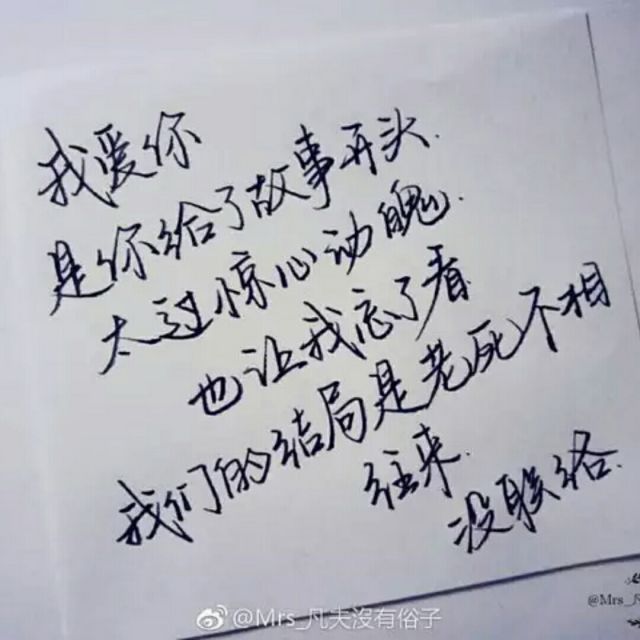 我爱你
是你给了故事开头.
太过惊心动魄.
也让我忘了看
我们的结局是老死不相
往来.
没联络.
@Mrs_凡
@Mrs_凡夫沒有俗子